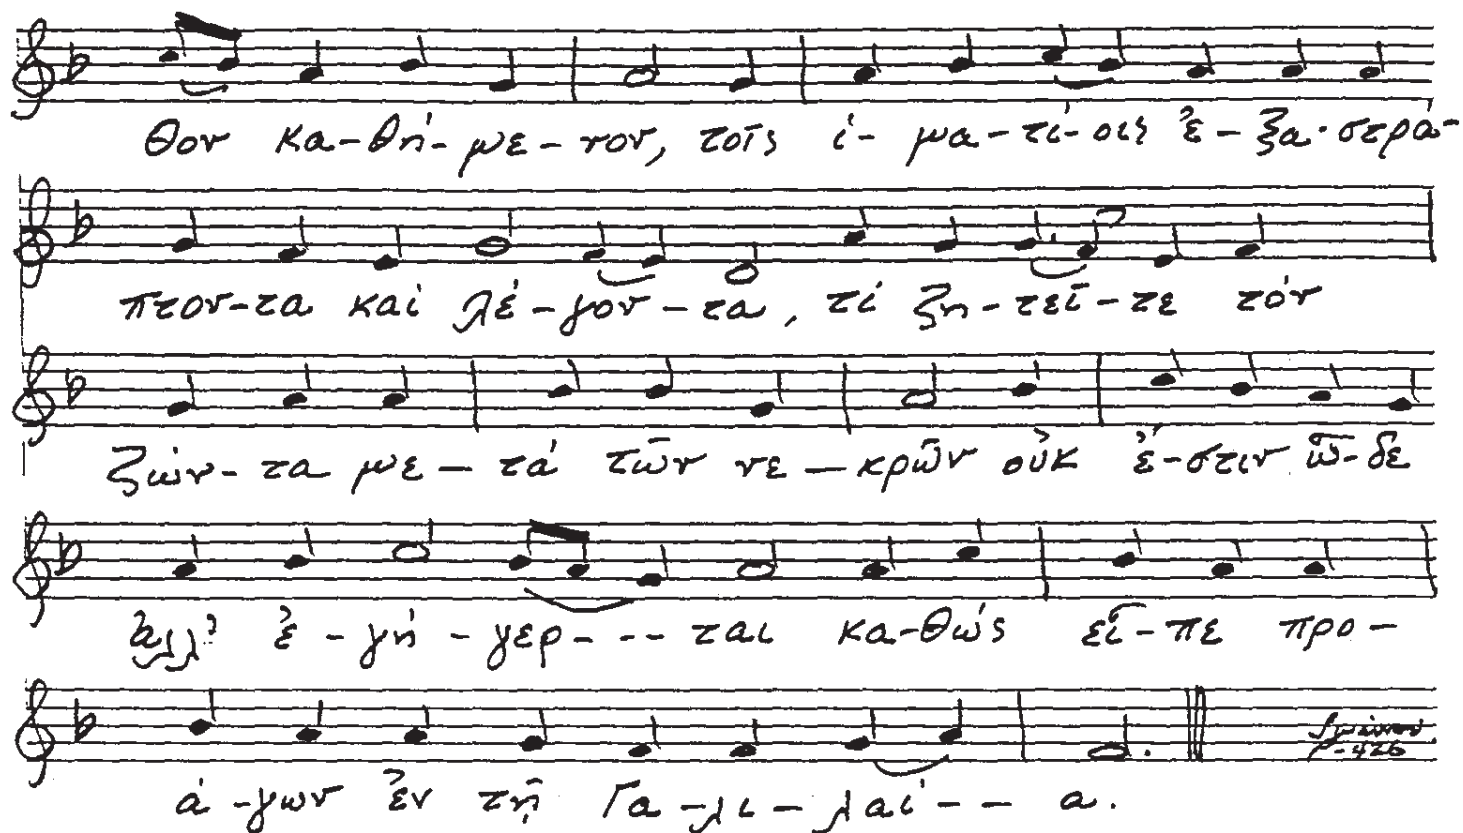 θον κα-θή-με-νον, τοῖς ἱ-μα-τί-οις ἐ-ξα-στρά-
πτον-τα καί λέ-γον-τα, τί ζη-τεῖ-τε τόν
ζών-τα με-τά τῶν νε-κρῶν οὐκ ἔ-στιν ὧ-δε
ἀλλ' ἐ-γή-γερ---ται κα-θώς εἶ-πε προ-
ά-γων ἐν τῇ Γα-λι-λαί--α.
426